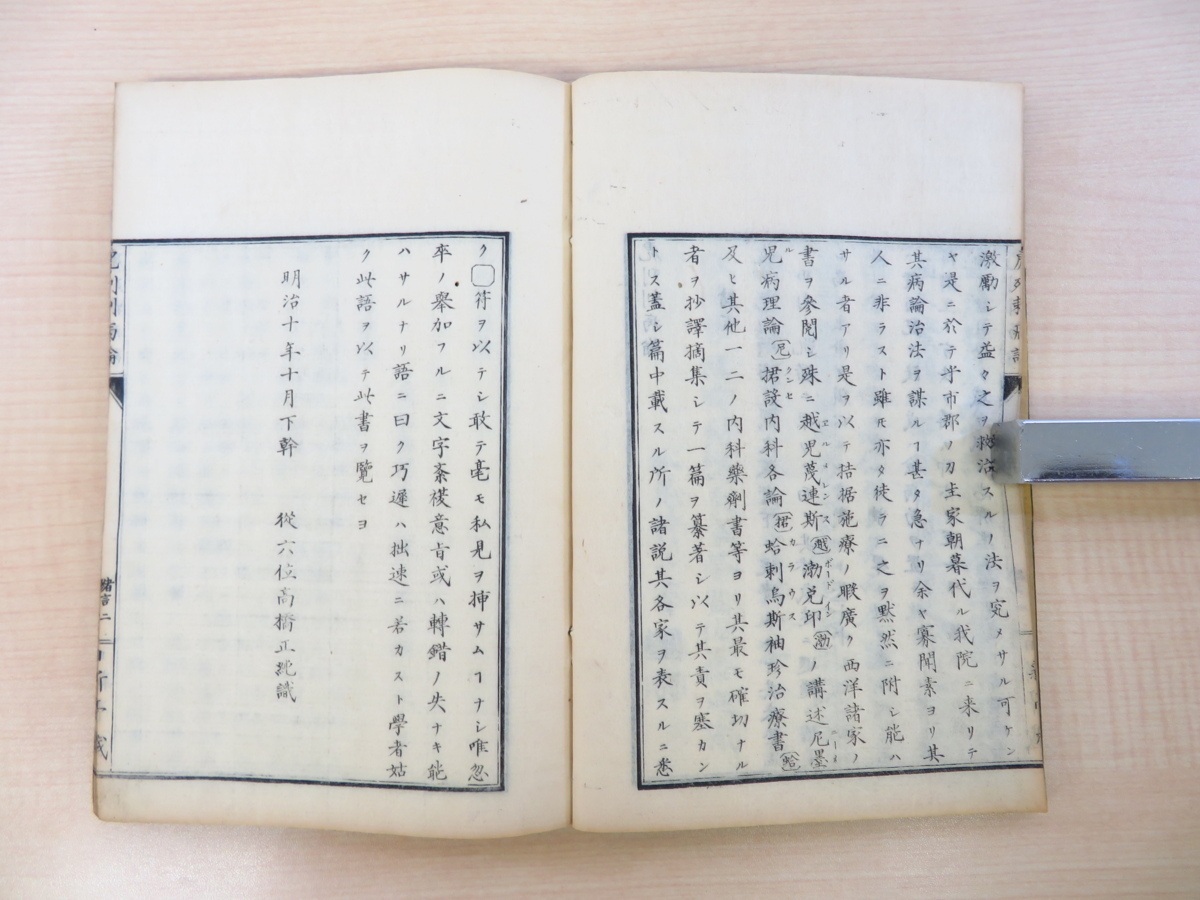 激勵シテ益々之ヲ救治スルノ法ヲ究メサル可ケン
ヤ是ニ於テ乎市郡ノ刀圭家朝暮代ル我院ニ来リテ
其病論治法ヲ謀ルヿ甚タ急ナリ余ヤ寡聞素ヨリ其
人ニ非ラスト雖モ亦タ徒ラニ之ヲ黙然ニ附シ能ハ
サル者アリ是ヲ以テ拮据施療ノ暇廣ク西洋諸家ノ
書ヲ參閲シ殊ニ越兒蔑連斯(越)渤兌印(渤)ノ講述尼墨
兒病理論(尼)捃設内科各論(捃)蛤刺烏斯袖珍治療書(蛤)
及ヒ其他一二ノ内科藥劑書等ヨリ其最モ確切ナル
者ヲ抄譯摘集シテ一篇ヲ纂著シ以テ其責ヲ塞カン
トス蓋シ篇中載スル所ノ諸説其各家ヲ表スルニ悉
ク〇符ヲ以テシ敢テ毫モ私見ヲ挿サムヿナシ唯忽
卒ノ舉加フルニ文字紊襍意旨或ハ轉錯ノ失ナキ能
ハサルナリ語ニ曰ク巧遲ハ拙速ニ若カスト學者姑
ク此語ヲ以テ此書ヲ覽セヨ
明治十年十月下幹　從六位高橋正純識
緒言二